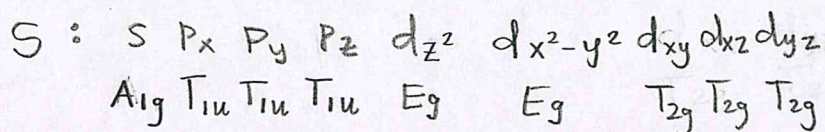 S : S Px Py Pz dz² dx²-y² dxy dxz dyz
A1g T1u T1u T1u Eg Eg T2g T2g T2g